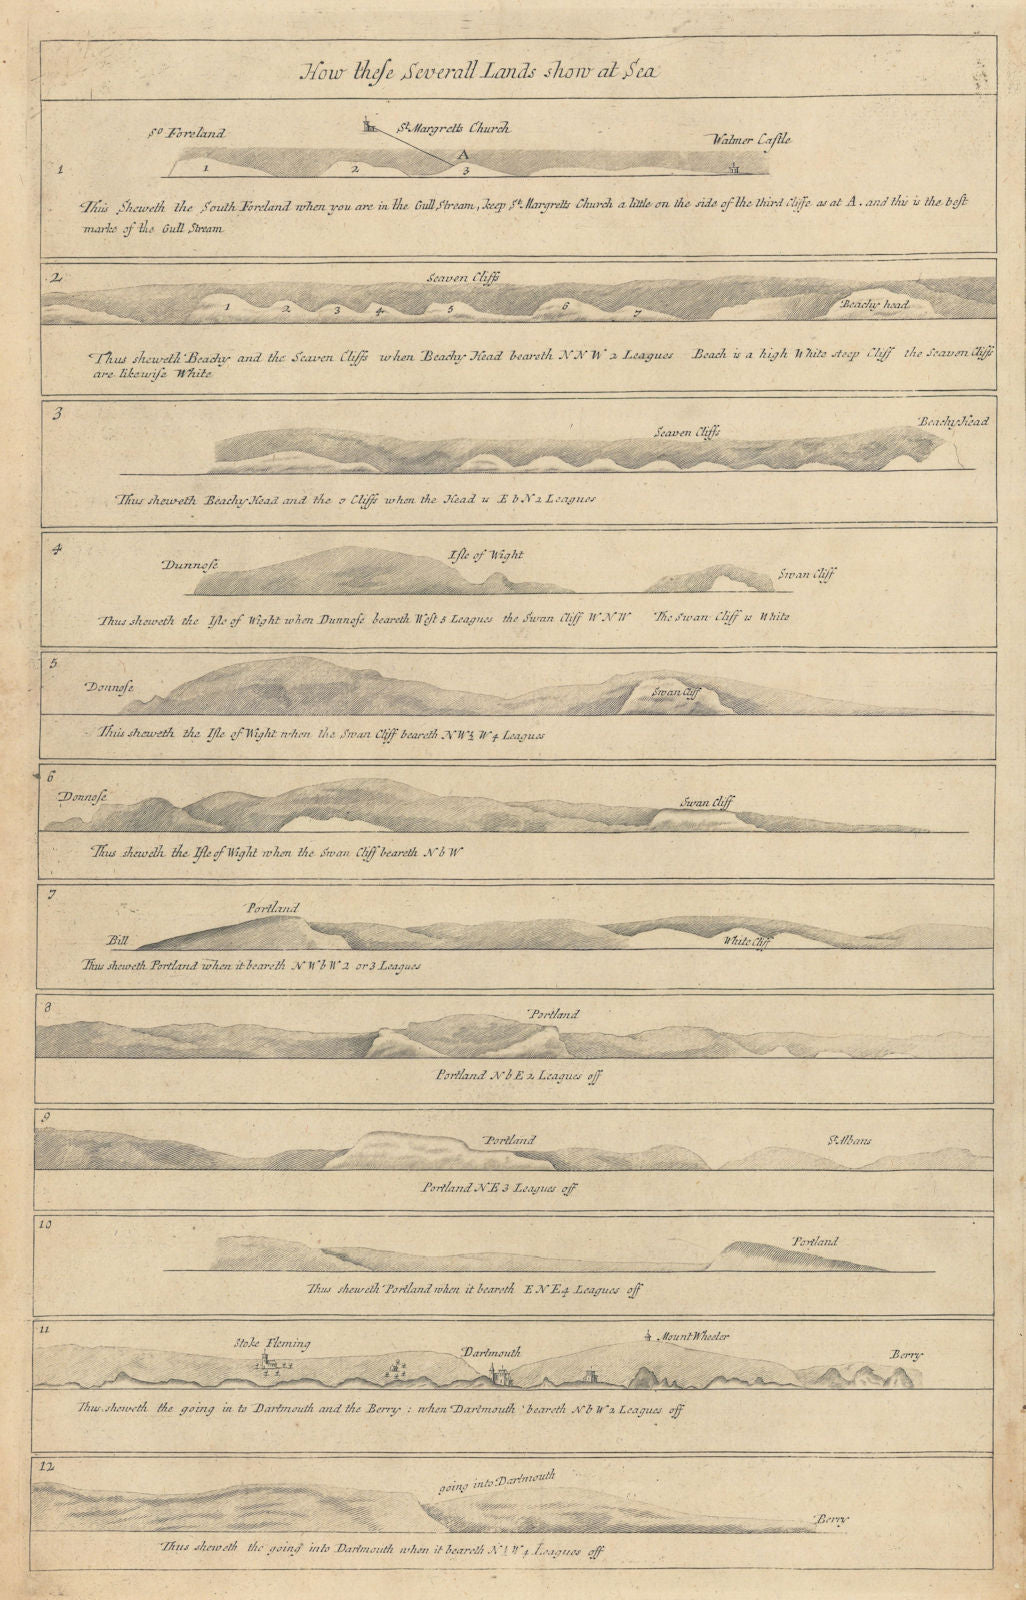 How these Severall Lands show at Sea
1
So Foreland
St. Margretts Church
Walmer Castle
A
1 2 3
Thus Sheweth the South Foreland when you are in the Gull Stream, keep St. Margretts Church a little on the side of the third Cliffe as at A. and this is the best
marke of the Gull Stream
2
Seaven Cliffs
1 2 3 4 5 6 7
Beachy head
Thus sheweth Beachy and the Seaven Cliffs when Beachy Head beareth N N W 2 Leagues Beach is a high White steep Cliff the Seaven Cliffs
are likewise White
3
Seaven Cliffs
Beachy Head
Thus sheweth Beachy Head and the 7 Cliffs when the Head is E b N 2 Leagues
4
Dunnose
Isle of Wight
Swan Cliff
Thus sheweth the Isle of Wight when Dunnose beareth West 5 Leagues the Swan Cliff W N W The Swan Cliff is White
5
Donnose
Swan Cliff
Thus sheweth the Isle of Wight when the Swan Cliff beareth N W ½ W 4 Leagues
6
Donnose
Swan Cliff
Thus sheweth the Isle of Wight when the Swan Cliff beareth N b W
7
Portland
Bill
White Cliff
Thus sheweth Portland when it beareth N W b W 2 or 3 Leagues
8
Portland
Portland N b E 2 Leagues off
9
Portland
St Albans
Portland N E 3 Leagues off
10
Portland
Thus sheweth Portland when it beareth E N E 4 Leagues off
11
Stoke Fleming
Dartmouth
Mount Wheeler
Berry
Thus sheweth the going in to Dartmouth and the Berry: when Dartmouth beareth N b W 2 Leagues off
12
going into Dartmouth
Berry
Thus sheweth the going into Dartmouth when it beareth N ½ W 4 Leagues off